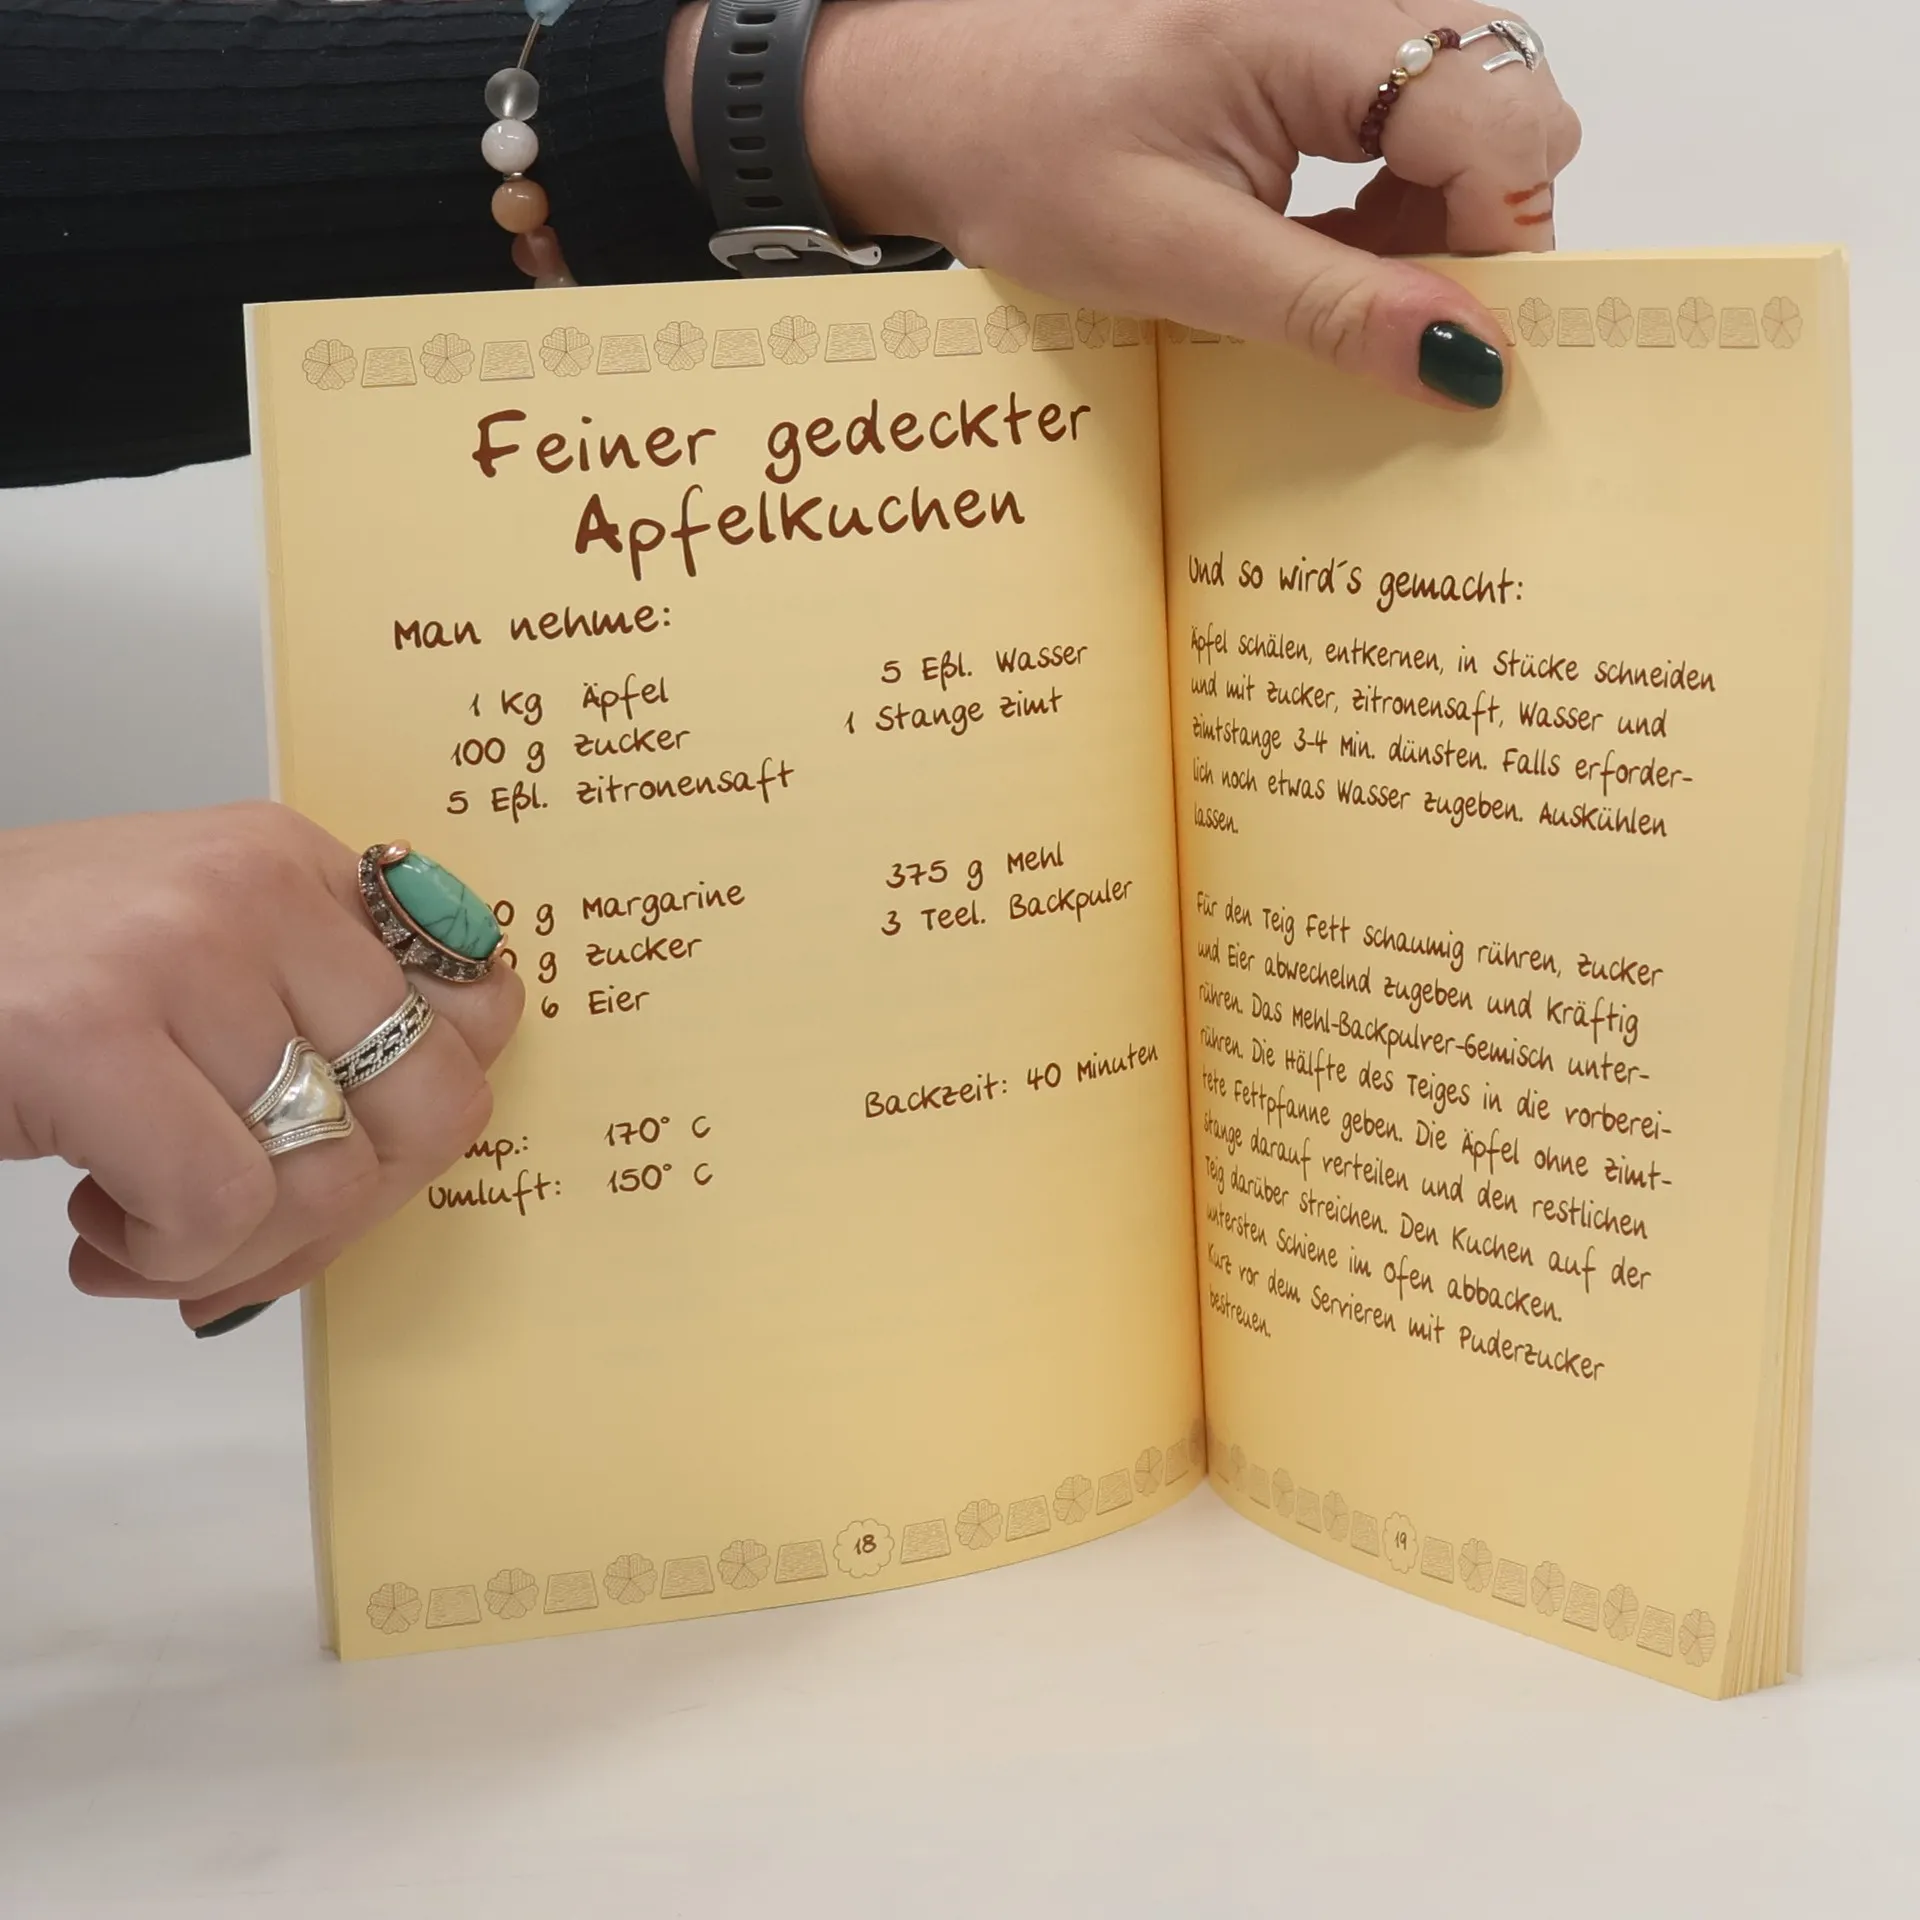 Feiner gedeckter
Apfelkuchen
Man nehme:
1 kg Äpfel
100 g Zucker
5 Eßl. Zitronensaft
5 Eßl. Wasser
1 Stange Zimt
g Margarine
g Zucker
6 Eier
375 g Mehl
3 Teel. Backpuler
170° C
Umluft: 150° C
Backzeit: 40 Minuten
18
Und so wird´s gemacht:
Äpfel schälen, entkernen, in Stücke schneiden
und mit Zucker, Zitronensaft, Wasser und
Zimtstange 3-4 Min. dünsten. Falls erforder-
lich noch etwas Wasser zugeben. Auskühlen
lassen.
Für den Teig Fett schaumig rühren, Zucker
und Eier abwechelnd zugeben und kräftig
rühren. Das Mehl-Backpulver-Gemisch unter-
rühren. Die Hälfte des Teiges in die vorberei-
tete Fettpfanne geben. Die Äpfel ohne Zimt-
stange darauf verteilen und den restlichen
Teig darüber streichen. Den Kuchen auf der
untersten Schiene im Ofen abbacken.
Kurz vor dem Servieren mit Puderzucker
bestreuen.
19